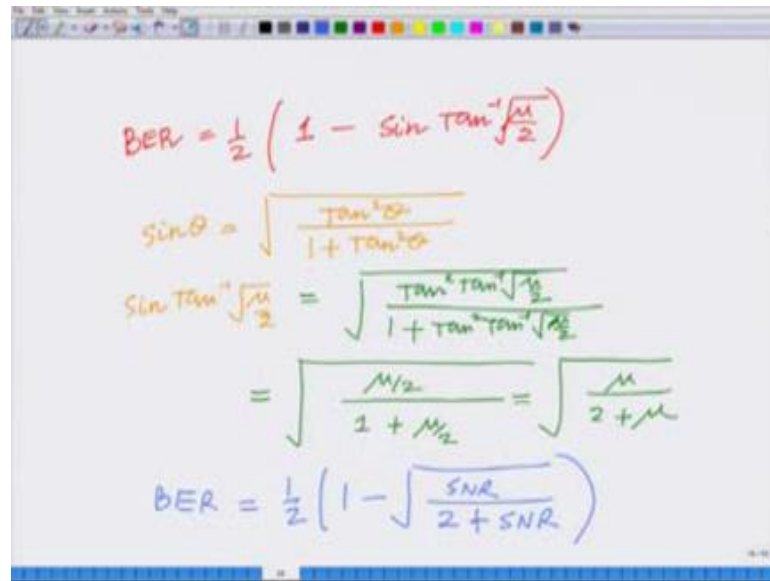 BER = 1/2 ( 1 - sin Tan⁻¹ √(μ/2) )
sin θ = √( Tan²θ / (1 + Tan²θ) )
sin Tan⁻¹ √(μ/2) = √( Tan² Tan⁻¹ √(μ/2) / (1 + Tan² Tan⁻¹ √(μ/2)) )
= √( (μ/2) / (1 + μ/2) ) = √( μ / (2 + μ) )
BER = 1/2 ( 1 - √( SNR / (2 + SNR) ) )